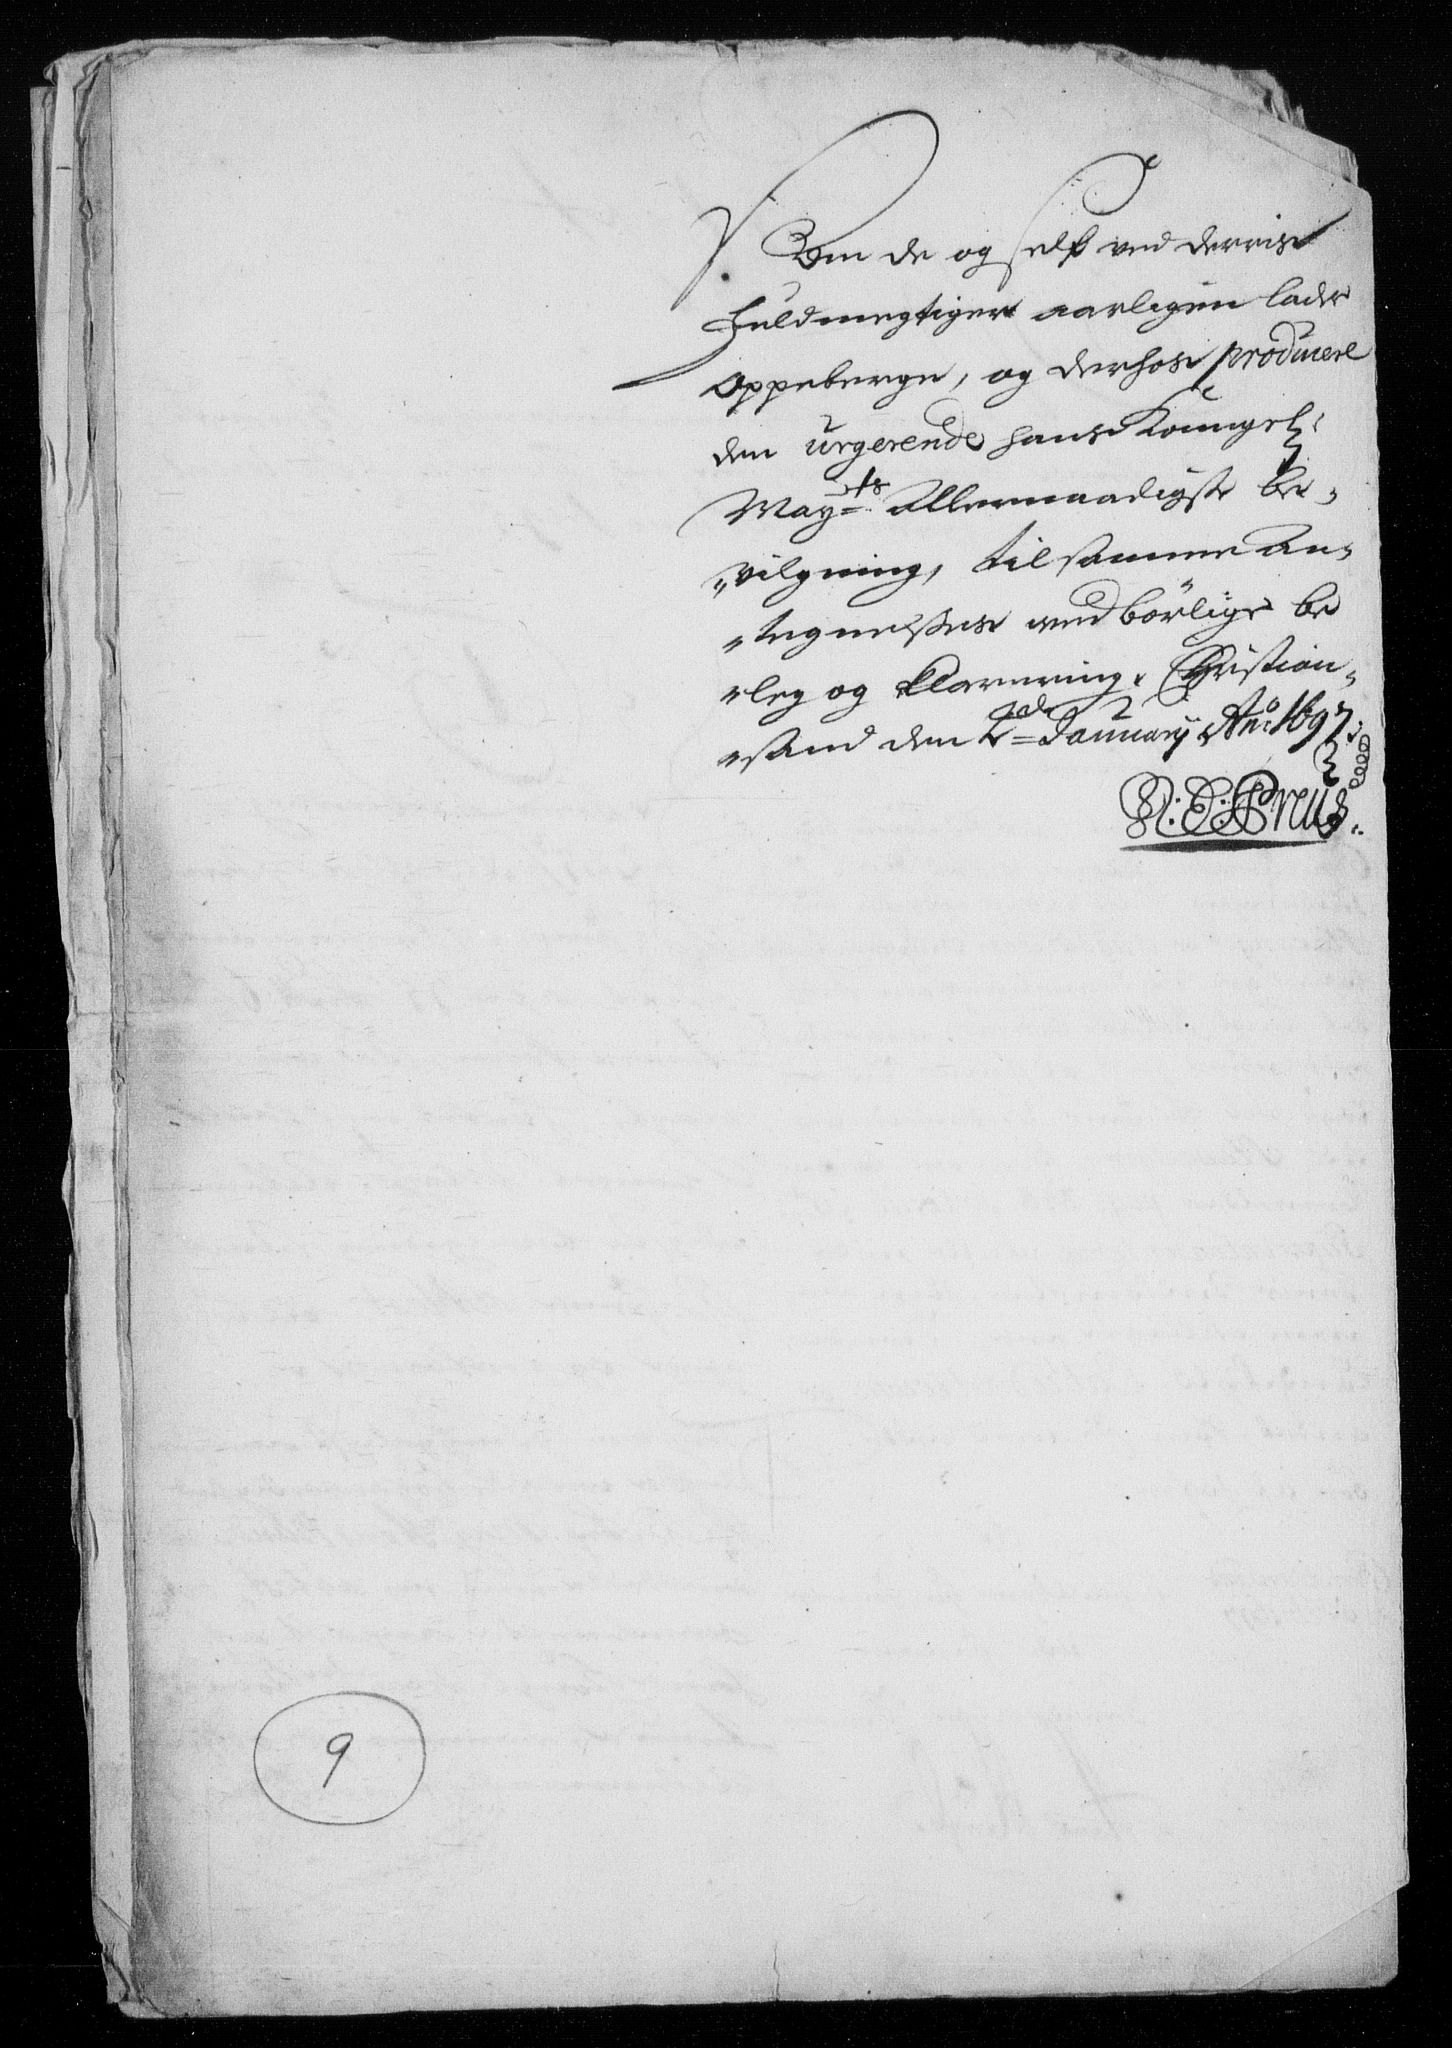 Som de og self ved derris
fuldmegtiger aarligen lader
oppeberge, og derhos producere
den urgerende hans Kongel:
Mayts Allernaadigste be-
"vilgning, til samme An-
"tegnelses ved börlige be
"leg og Klarering. Christian-
"sand den 2de January Ano 1697.
Preus.
9